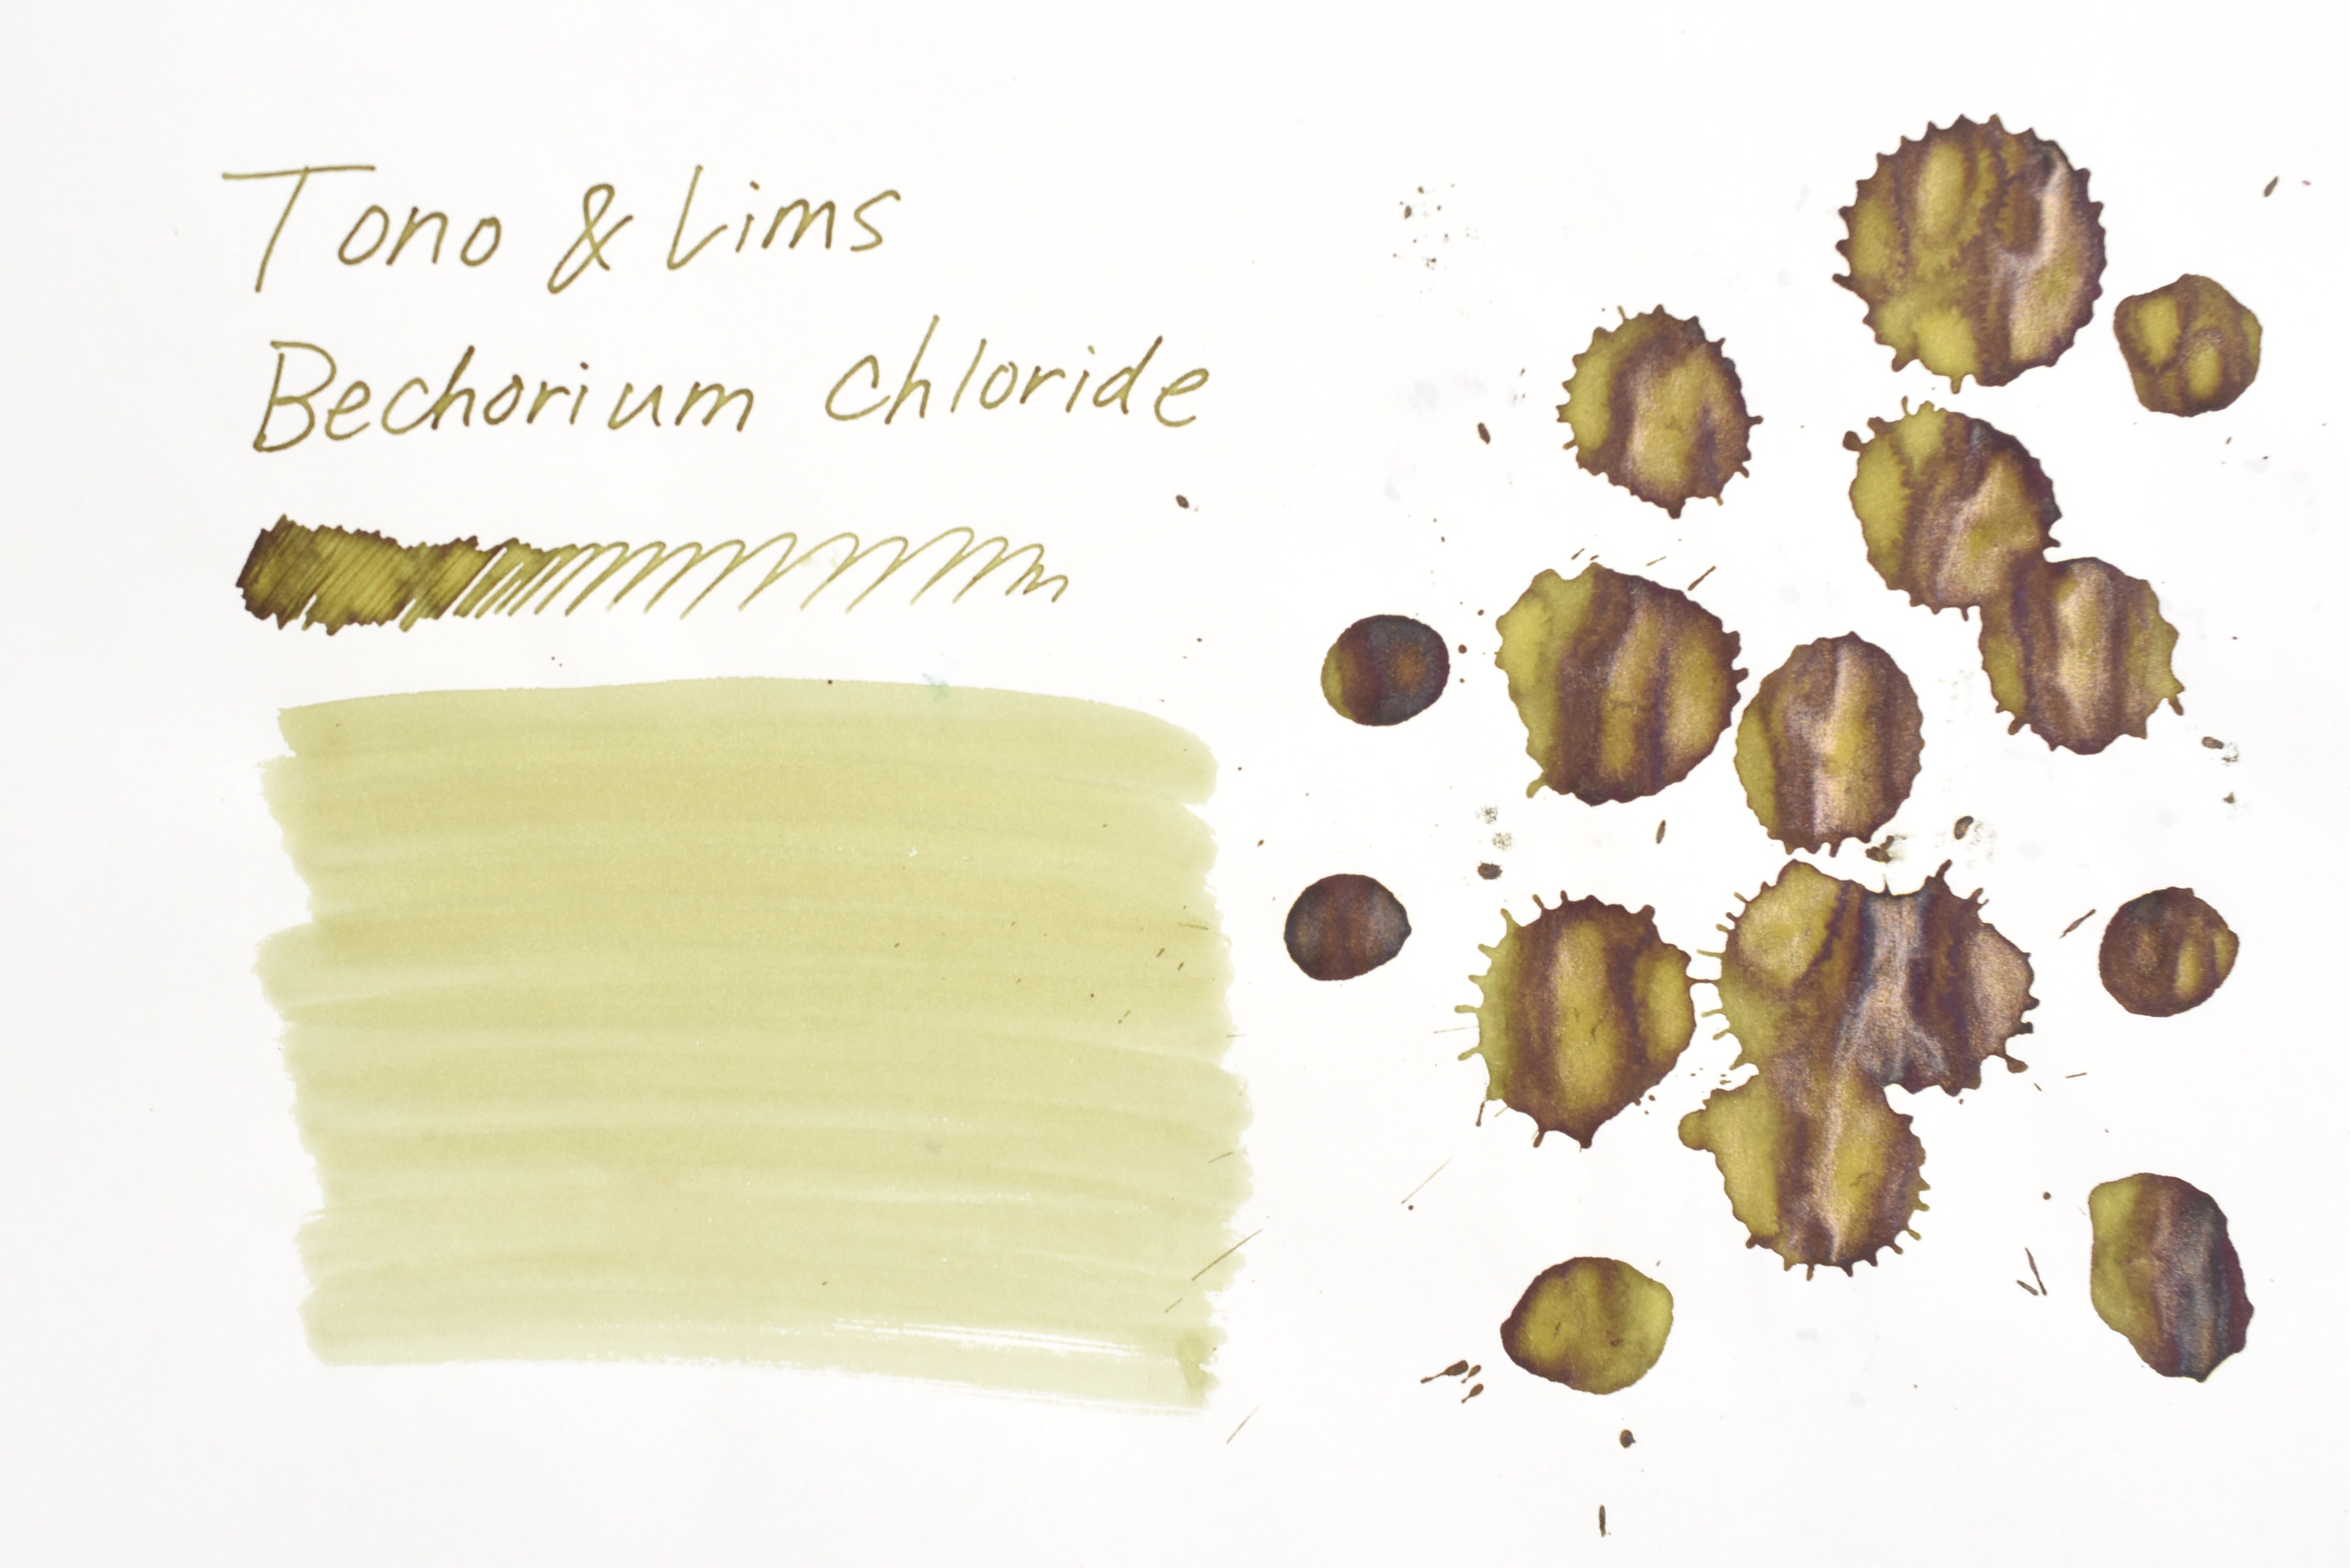 Tono & Lims
Bechorium chloride